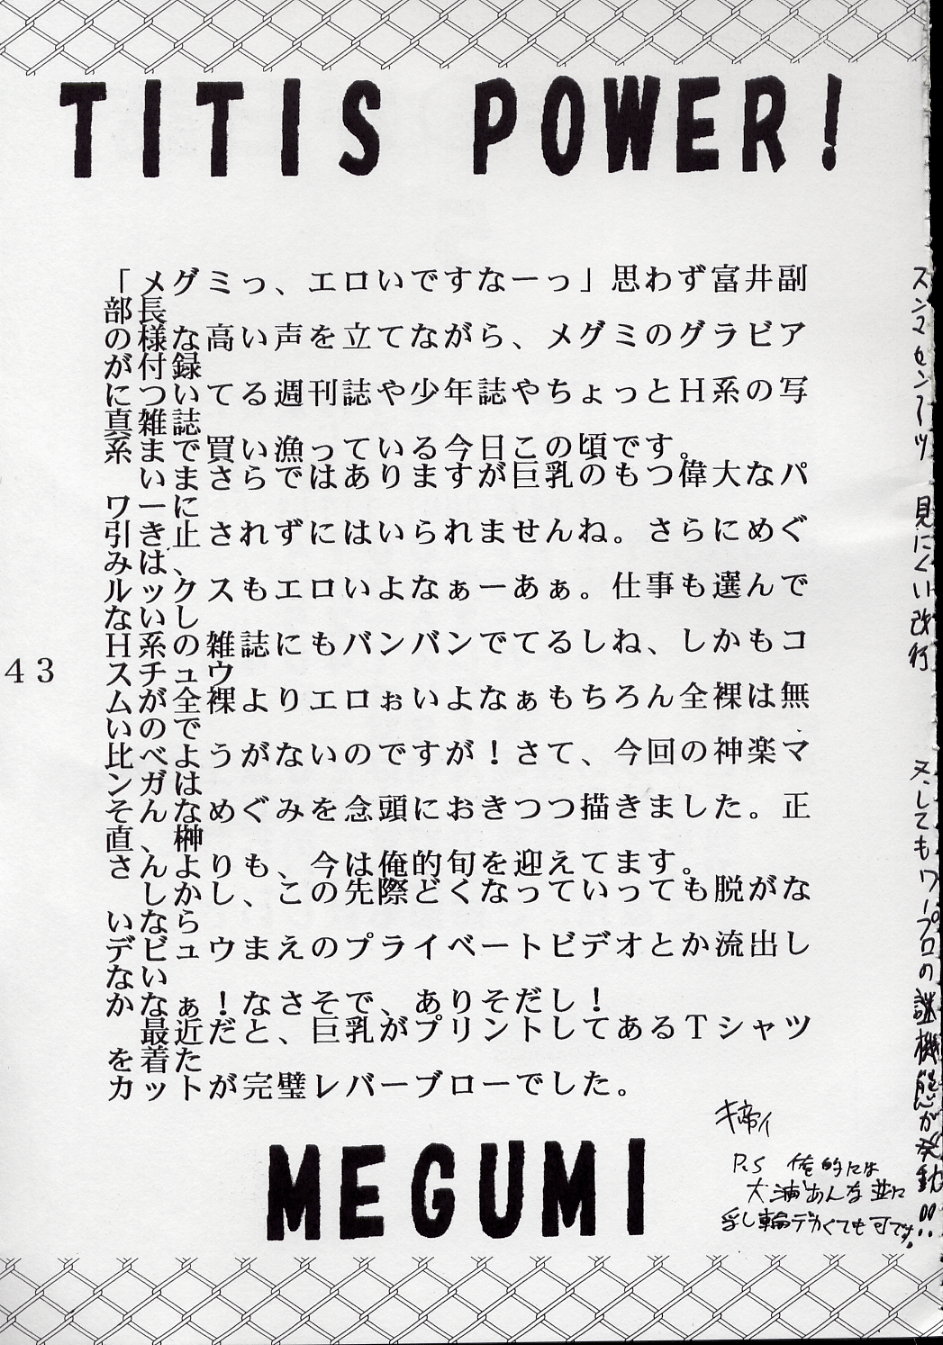 TITIS POWER!
「メグミっ、エロいですなーっ」思わず富井副
部長
の様な高い声を立てながら、メグミのグラビア
が付録
についてる週刊誌や少年誌やちょっとＨ系の写
真雑誌
系まで買い漁っている今日この頃です。
いまさらではありますが巨乳のもつ偉大なパ
ワーに
引き止されずにはいられませんね。さらにめぐ
みは、
ルックスもエロいよなぁーあぁ。仕事も選んで
ないし
Ｈ系の雑誌にもバンバンでてるしね、しかもコ
スチュウ
ムが全裸よりエロぉいよなぁもちろん全裸は無
いので
比べようがないのですが！さて、今回の神楽マ
ンガは
そんなめぐみを念頭におきつつ描きました。正
直、榊
さんよりも、今は俺的旬を迎えてます。
しかし、この先際どくなっていっても脱がな
いなら
デビュウまえのプライベートビデオとか流出し
ない
かなぁ！なさそで、ありそだし！
最近だと、巨乳がプリントしてあるＴシャツ
を着た
カットが完璧レバーブローでした。
43
MEGUMI
P.S 俺的には
大浦あんな並に
乳輪デカくても可です。
スンマセンーッ 見にくい改行
又してもワープロの謎機能が発動!!